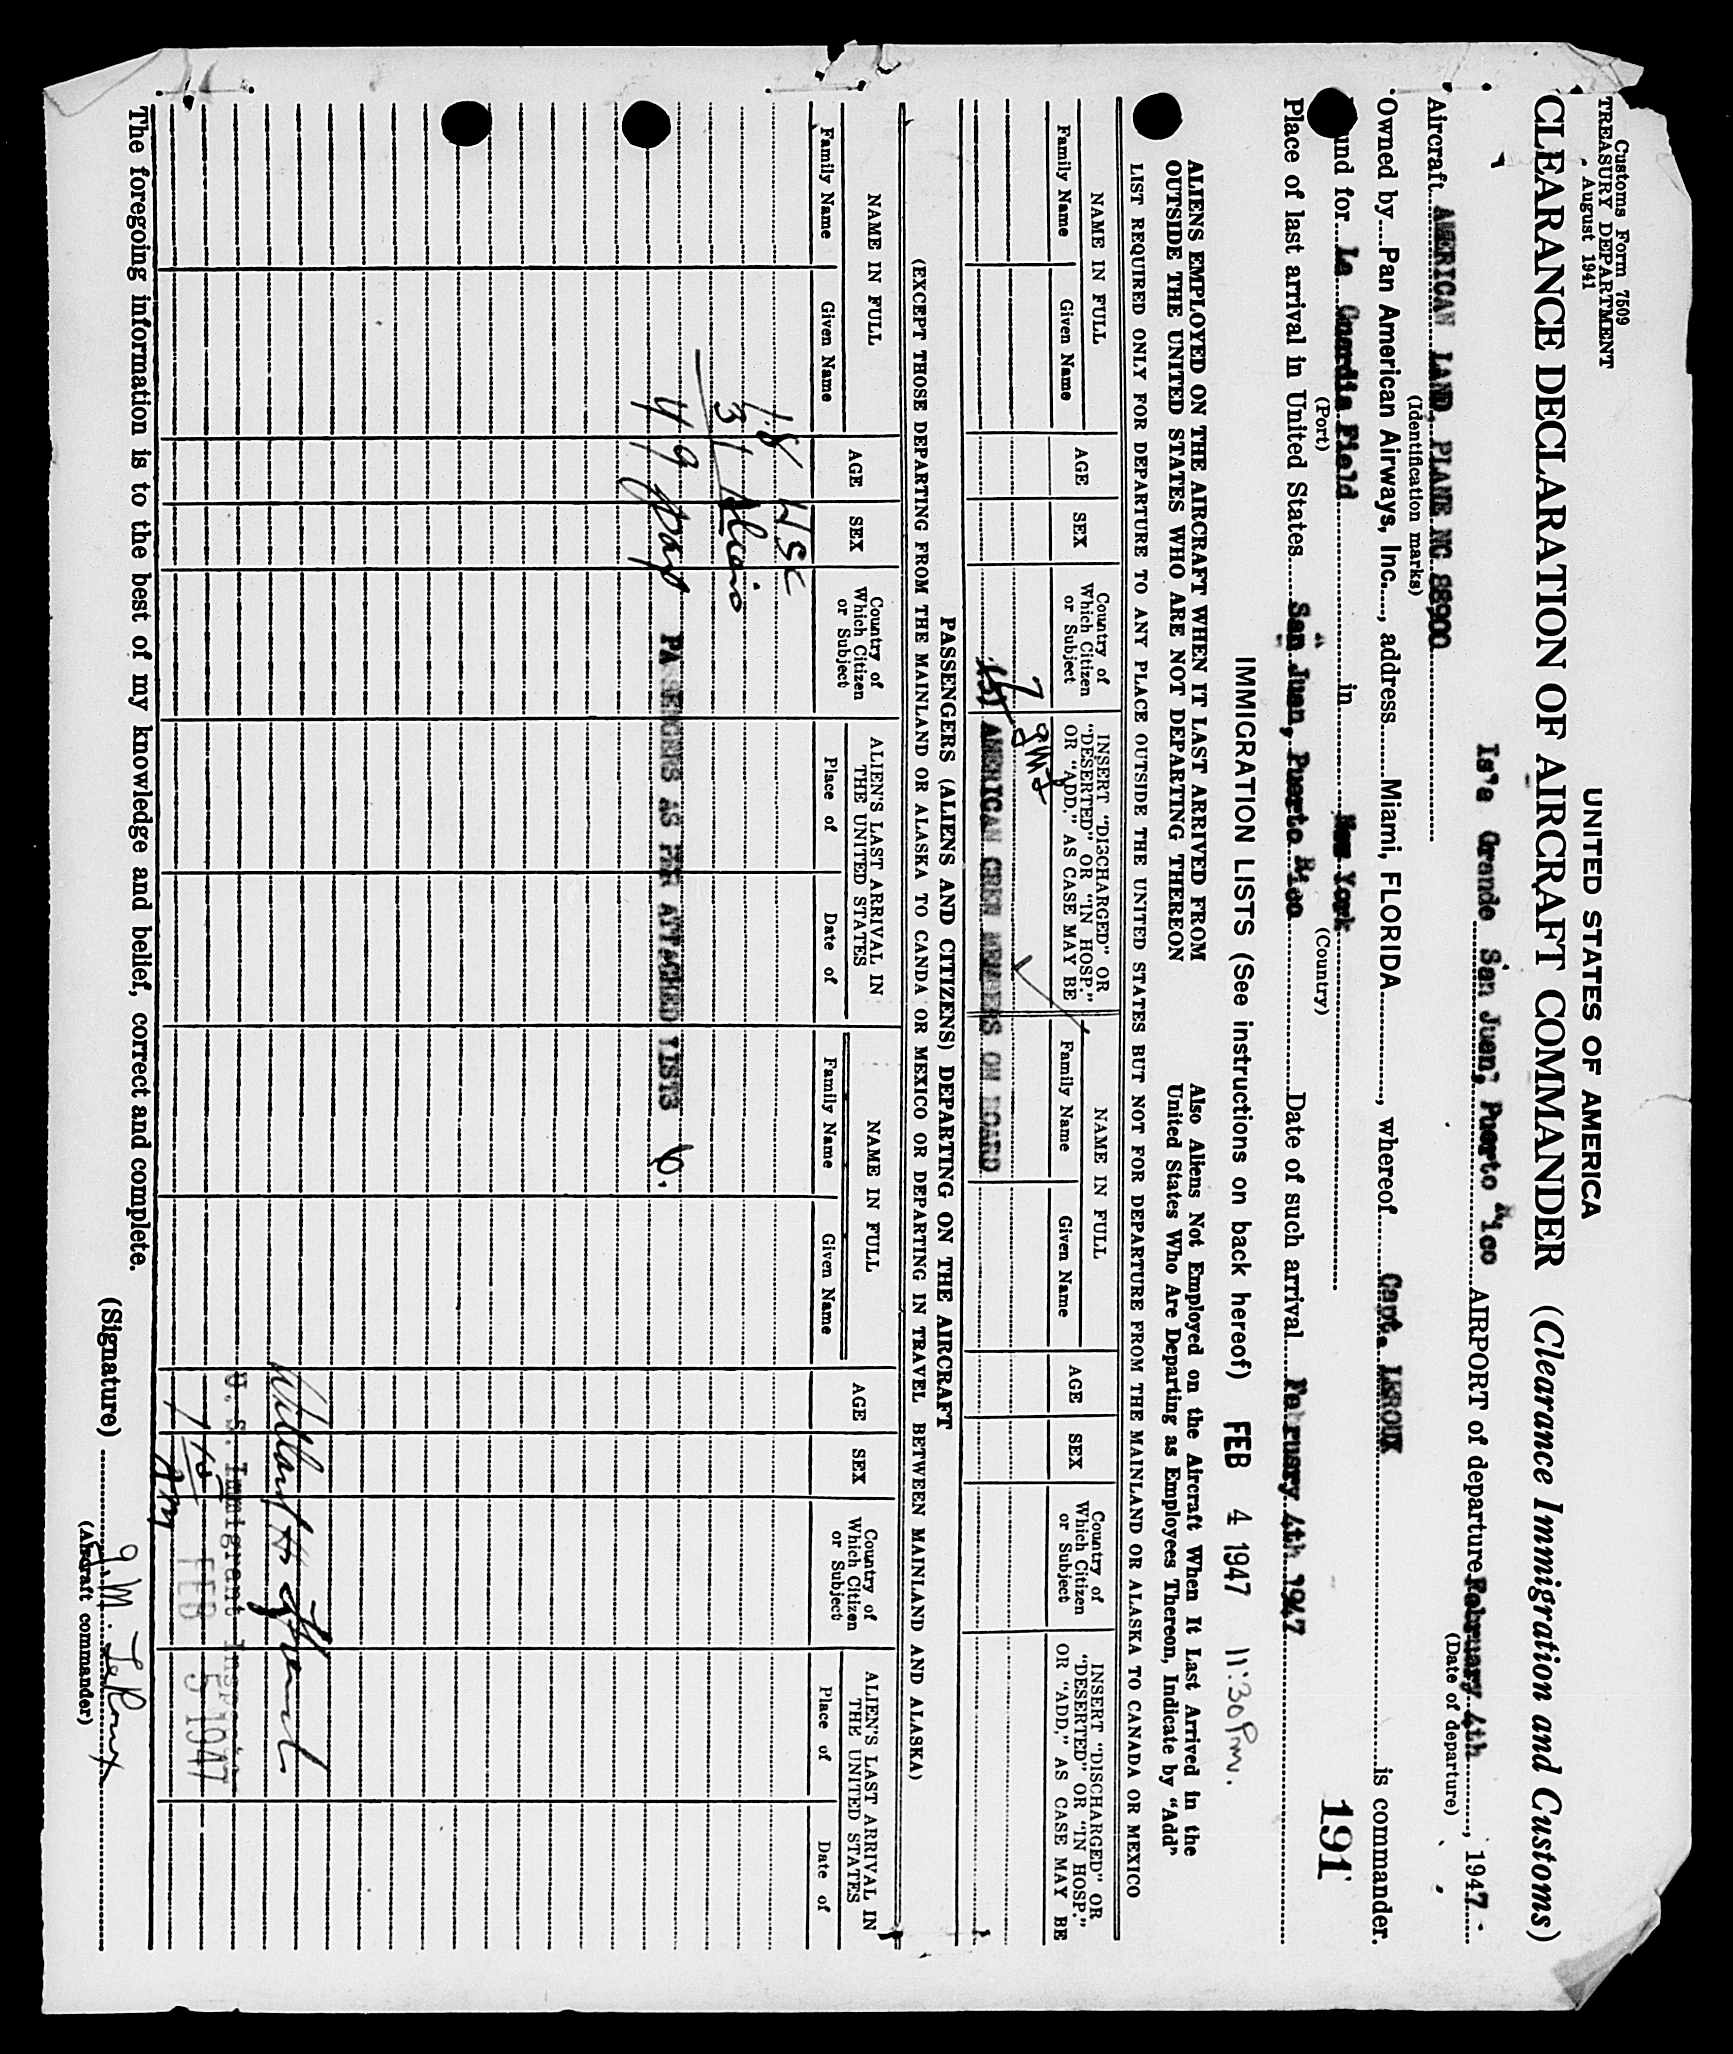 Customs Form 7509
TREASURY DEPARTMENT
August 1941
UNITED STATES OF AMERICA
CLEARANCE DECLARATION OF AIRCRAFT COMMANDER (Clearance Immigration and Customs)
Is'a Grande San Juan, Puerto Rico AIRPORT of departure February 4th, 1947
(Date of departure)
Aircraft AMERICAN LAND, PLANE NC 88900
(Identification marks)
Owned by Pan American Airways, Inc., address Miami, FLORIDA, whereof Capt. LEROUX is commander.
und for La Guardia Field in New York
(Port)
(Country)
191
Place of last arrival in United States San Juan, Puerto Rico Date of such arrival February 4th 1947
IMMIGRATION LISTS (See instructions on back hereof) FEB 4 1947 11:30 Pm.
ALIENS EMPLOYED ON THE AIRCRAFT WHEN IT LAST ARRIVED FROM
OUTSIDE THE UNITED STATES WHO ARE NOT DEPARTING THEREON
Also Aliens Not Employed on the Aircraft When It Last Arrived in the
United States Who Are Departing as Employees Thereon, Indicate by "Add"
LIST REQUIRED ONLY FOR DEPARTURE TO ANY PLACE OUTSIDE THE UNITED STATES BUT NOT FOR DEPARTURE FROM THE MAINLAND OR ALASKA TO CANADA OR MEXICO
NAME IN FULL
Family Name
Given Name
AGE
SEX
Country of
Which Citizen
or Subject
INSERT "DISCHARGED" OR
"DESERTED" OR "IN HOSP."
OR "ADD," AS CASE MAY BE
NAME IN FULL
Family Name
Given Name
AGE
SEX
Country of
Which Citizen
or Subject
INSERT "DISCHARGED" OR
"DESERTED" OR "IN HOSP."
OR "ADD," AS CASE MAY BE
7
AMERICAN CREW MEMBERS ON BOARD
PASSENGERS (ALIENS AND CITIZENS) DEPARTING ON THE AIRCRAFT
(EXCEPT THOSE DEPARTING FROM THE MAINLAND OR ALASKA TO CANDA OR MEXICO OR DEPARTING IN TRAVEL BETWEEN MAINLAND AND ALASKA)
NAME IN FULL
Family Name
Given Name
AGE
SEX
Country of
Which Citizen
or Subject
ALIEN'S LAST ARRIVAL IN
THE UNITED STATES
Place of
Date of
NAME IN FULL
Family Name
Given Name
AGE
SEX
Country of
Which Citizen
or Subject
ALIEN'S LAST ARRIVAL IN
THE UNITED STATES
Place of
Date of
18 USC
31
49
PASSENGERS AS PER ATTACHED LISTS
U. S. Immigrant Inspector
FEB 5 1947
AM
The foregoing information is to the best of my knowledge and belief, correct and complete.
(Signature) J. M. LeRoux
(Aircraft commander)